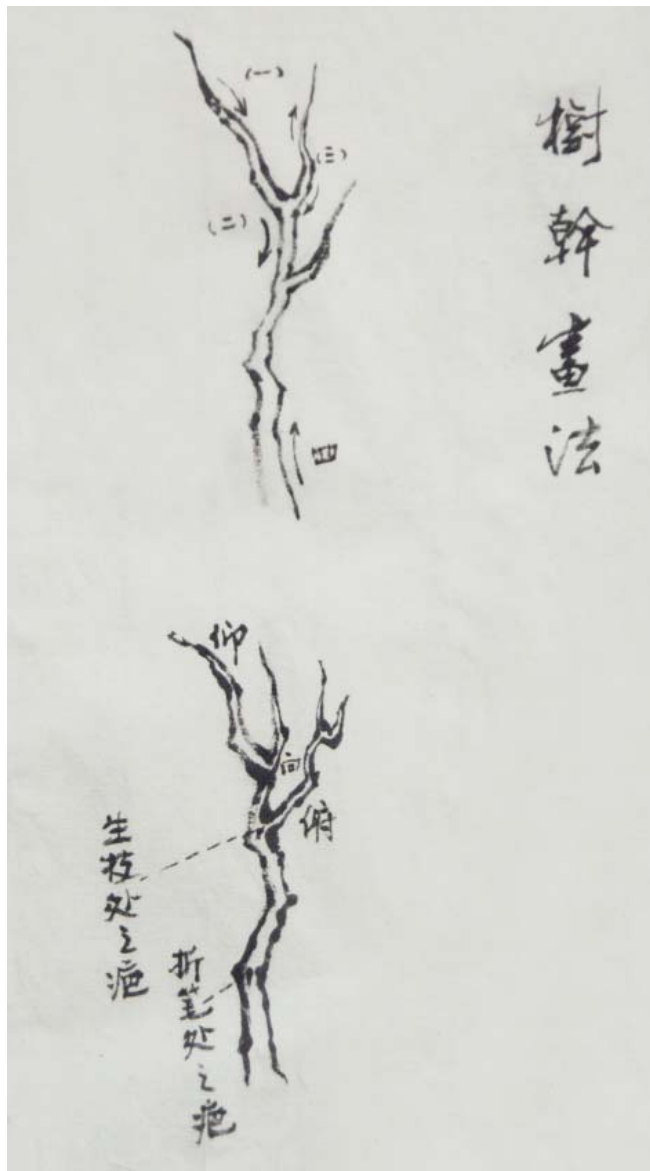 樹幹畫法
(一)
(三)
(二)
四
仰
向
俯
生枝处之疤
折笔处之疤